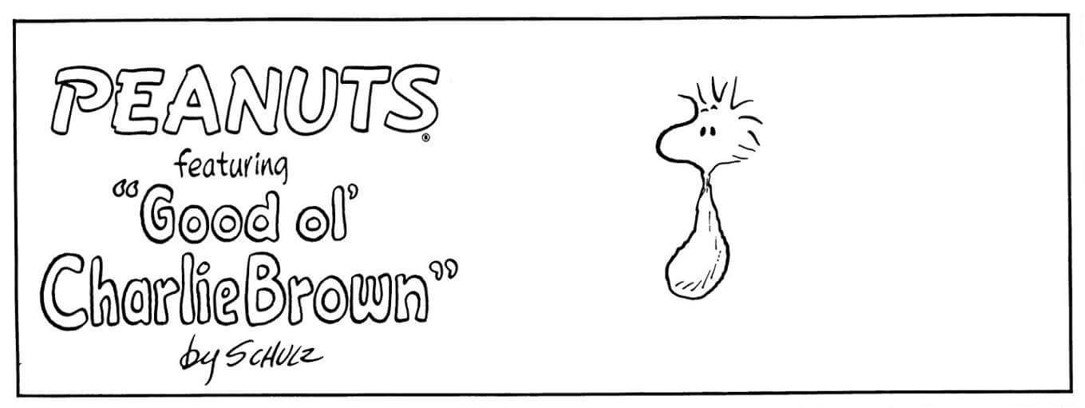 PEANUTS®
featuring
"Good ol'
Charlie Brown"
by SCHULZ